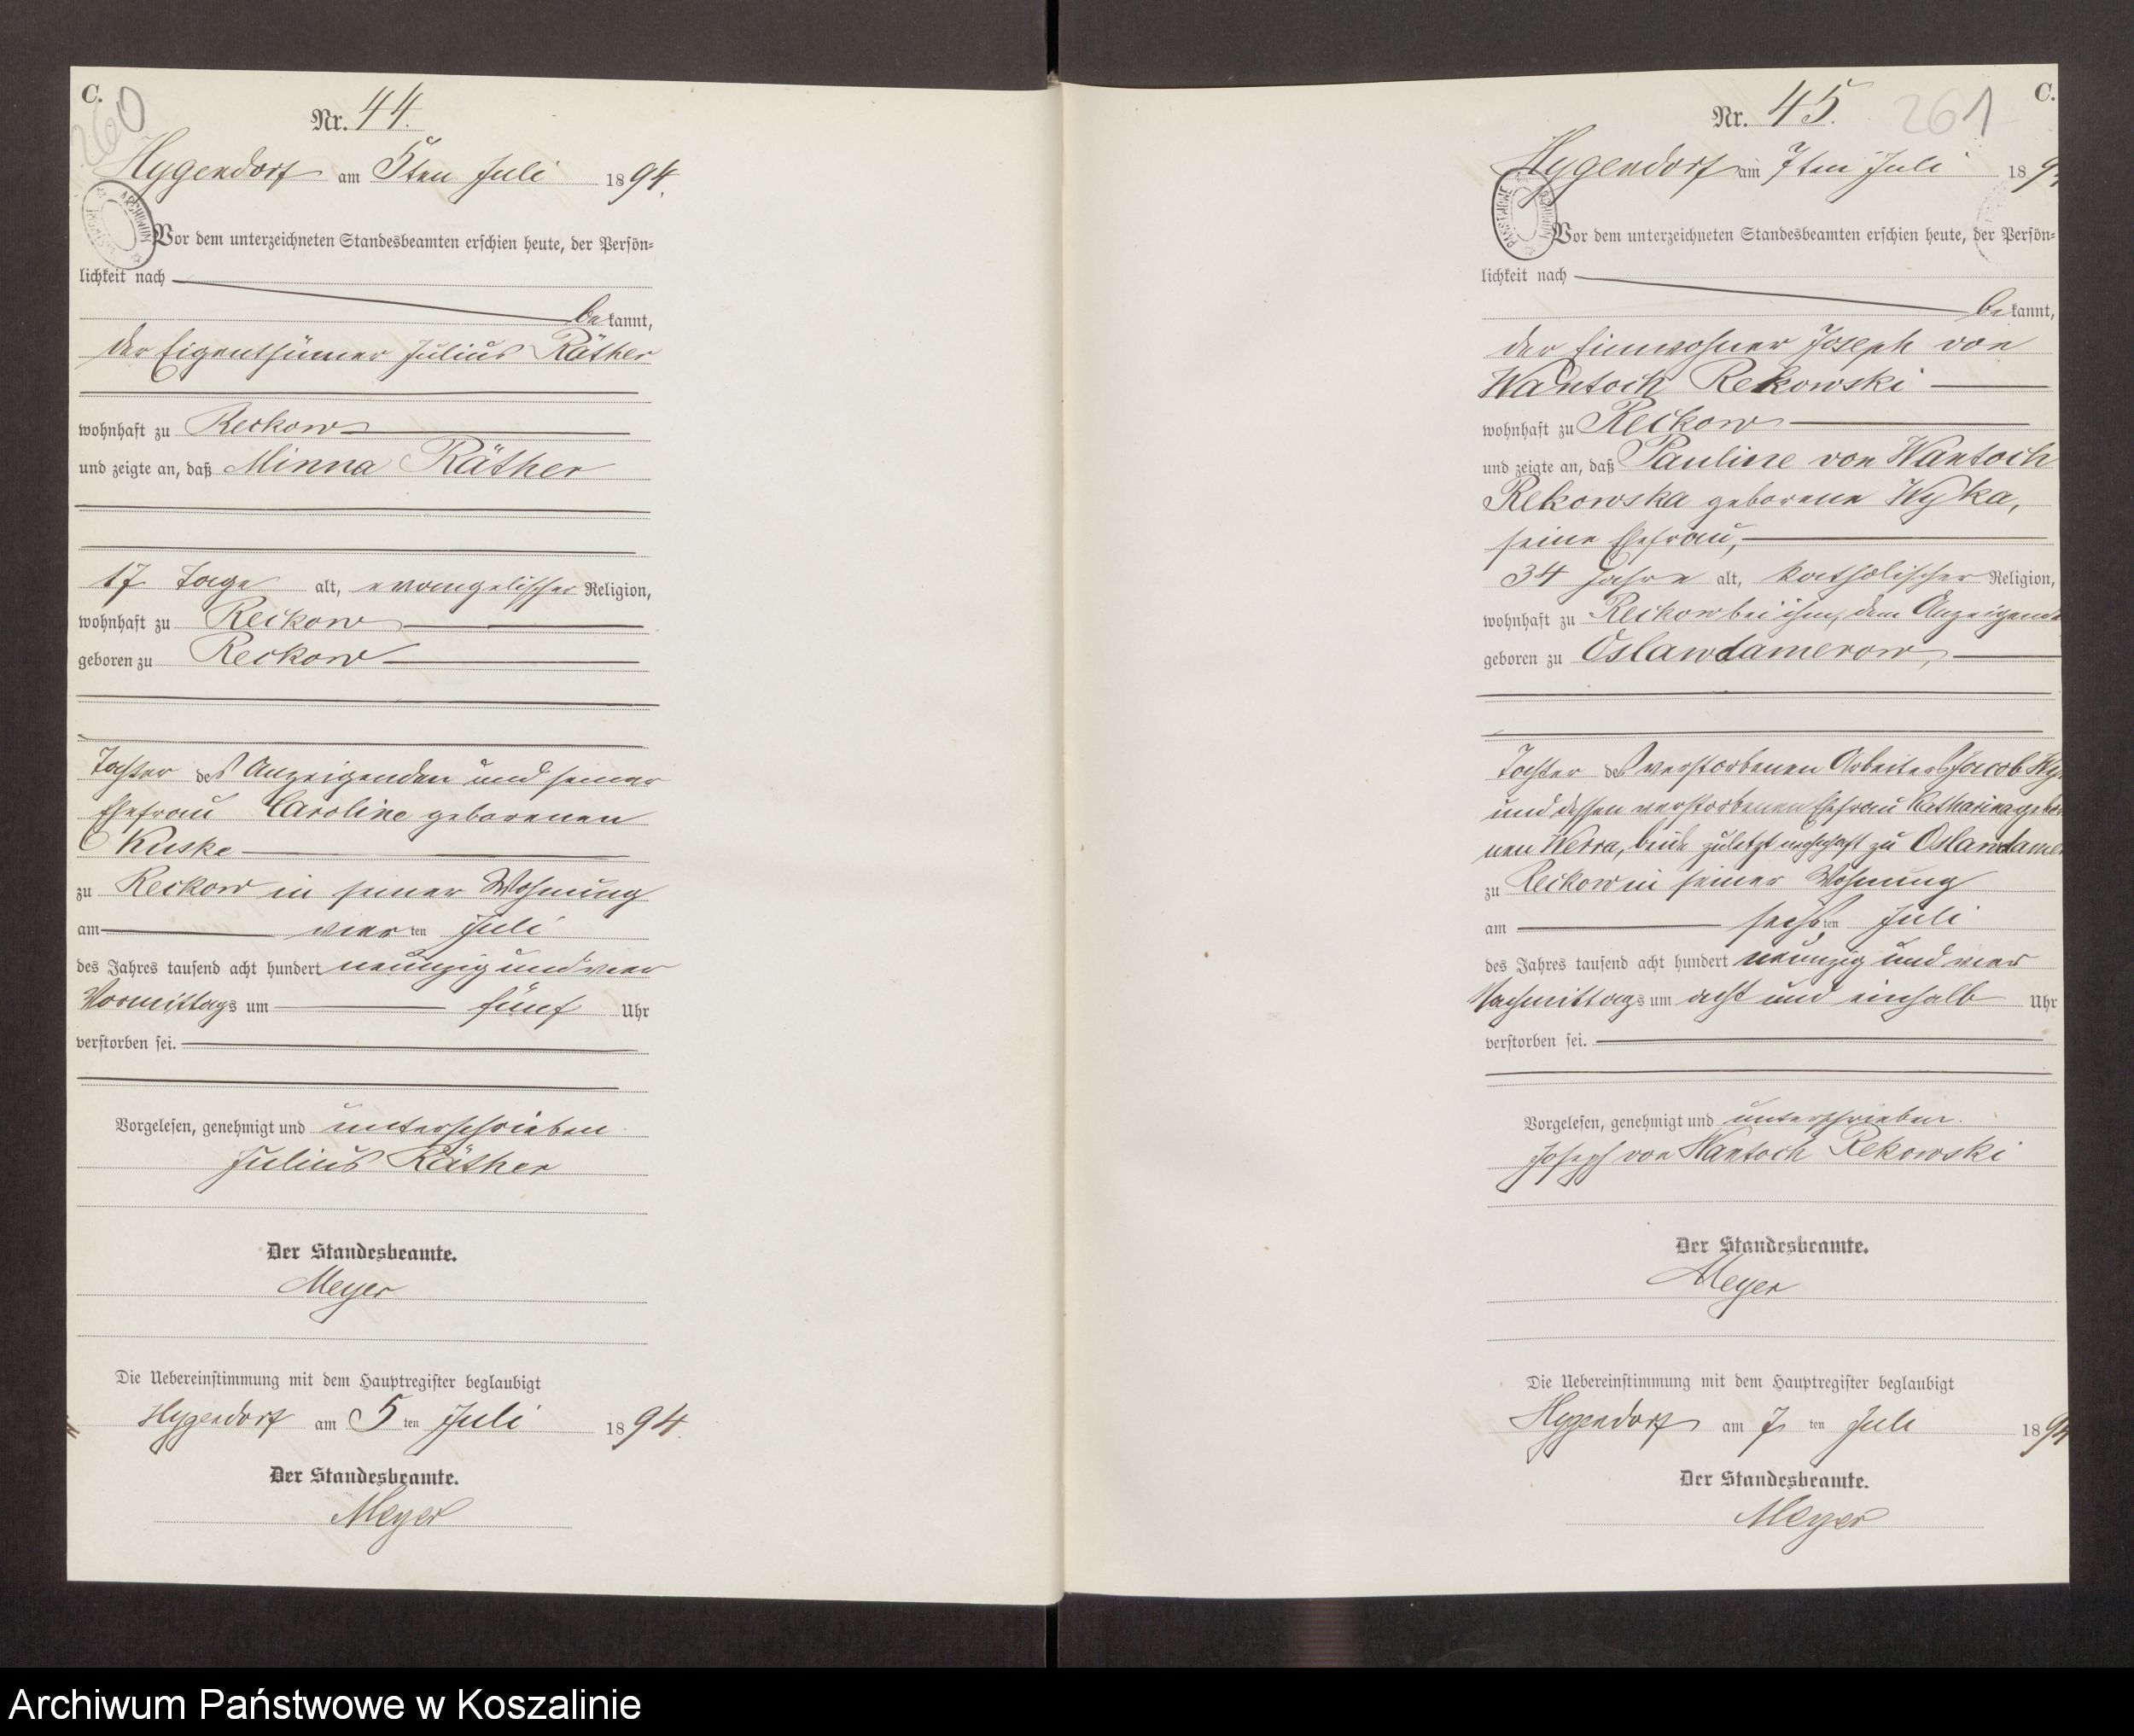 C.
260
Nr. 44.
Hygendorf am 5ten Juli 1894.
Vor dem unterzeichneten Standesbeamten erschien heute, der Persön-
lichkeit nach
bekannt,
der Eigenthümer Julius Räther
wohnhaft zu Reckow
und zeigte an, daß Minna Räther
17 Tage alt, evangelischer Religion,
wohnhaft zu Reckow
geboren zu Reckow
Tochter des Anzeigenden und seiner
Ehefrau Caroline geborenen
Kuske
zu Reckow in seiner Wohnung
am vierten Juli
des Jahres tausend acht hundert neunzig und vier
Vormittags um fünf Uhr
verstorben sei.
Vorgelesen, genehmigt und unterschrieben
Julius Räther
Der Standesbeamte.
Meyer
Die Uebereinstimmung mit dem Hauptregister beglaubigt
Hygendorf am 5ten Juli 1894.
Der Standesbeamte.
Meyer
C.
261
Nr. 45.
Hygendorf am 7ten Juli 189
Vor dem unterzeichneten Standesbeamten erschien heute, der Persön-
lichkeit nach
bekannt,
der Einwohner Joseph von
Wantoch Rekowski
wohnhaft zu Reckow
und zeigte an, daß Pauline von Wantoch
Rekowska geborene Hyka,
seine Ehefrau,
34 Jahre alt, katholischer Religion,
wohnhaft zu Reckow bei ihm, dem Anzeigende
geboren zu Oslawdamerow,
Tochter des verstorbenen Arbeiters Jacob Hy
und dessen verstorbenen Ehefrau Katharina gebor
nen Werra, beide zuletzt wohnhaft zu Oslawdame
zu Reckow in seiner Wohnung
am sechsten Juli
des Jahres tausend acht hundert neunzig und vier
Nachmittags um acht und einhalb Uhr
verstorben sei.
Vorgelesen, genehmigt und unterschrieben.
Joseph von Wantoch Rekowski
Der Standesbeamte.
Meyer
Die Uebereinstimmung mit dem Hauptregister beglaubigt
Hygendorf am 7ten Juli 1894
Der Standesbeamte.
Meyer
Archiwum Państwowe w Koszalinie